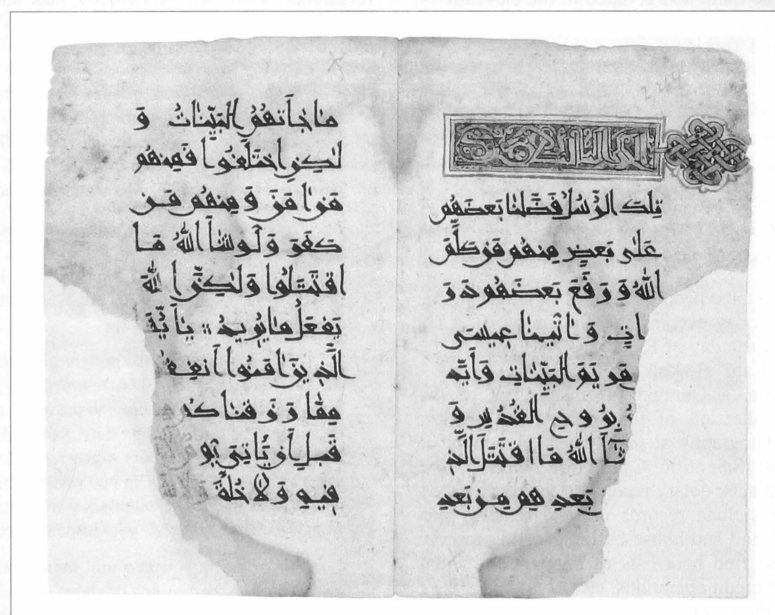 تِلكَ الرُّسُلُ فَضَّلنَا بَعضَهُم
عَلىٰ بَعضٍ مِنهُم مَن كَلَّمَ
اللهُ وَرَفَعَ بَعضَهُم دَرَ
اتٍ وَءَاتَينَا عِيسَى
مَريَمَ البَيِّنَاتِ وَأَيَّد
بِرُوحِ القُدُسِ وَ
شَآ اللهُ مَا اقتَتَلَ الَّذ
بَعدِهِم مِن بَعدِ
مَا جَآتهُمُ البَيِّنَاتُ وَ
لَكِنِ اختَلَفُوا فَمِنهُم
مَن ءَامَنَ وَمِنهُم مَن
كَفَرَ وَلَو شَآ اللهُ مَا
اقتَتَلُوا وَلَكِنَّ اللهَ
يَفعَلُ مَا يُرِيدُ يَأَيُّهَا
الَّذِينَ ءَامَنُوا أَنفِقُ
مِمَّا رَزَقنَاكُم
قَبلِ أَن يَأتِيَ يَو
فِيهِ وَلَا خُلَّةٌ